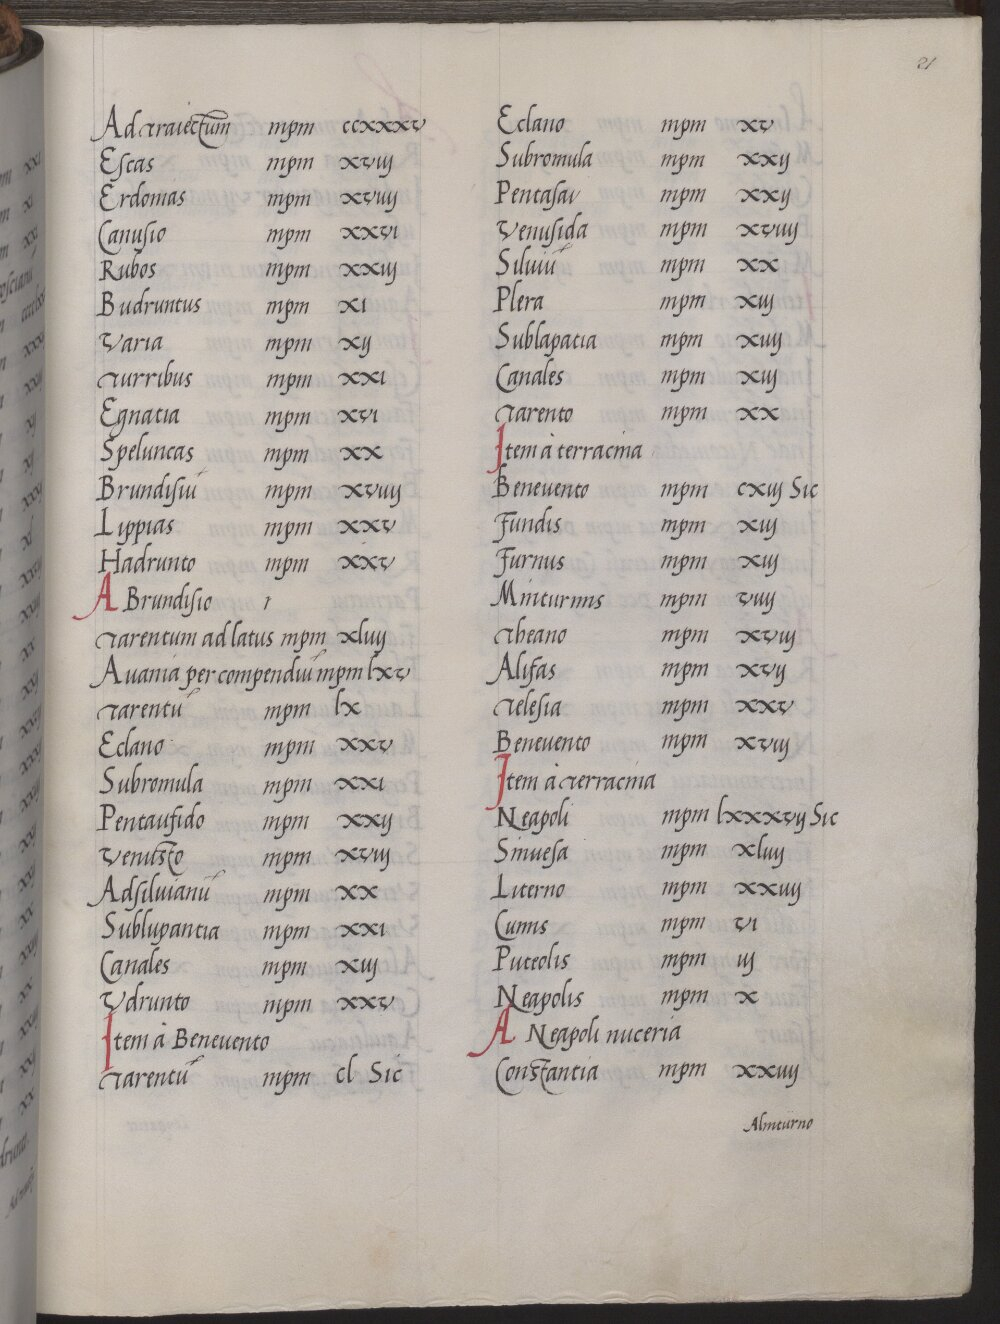 21
Ad traiectum mpm ccxxxv
Escas mpm xviij
Erdomas mpm xviiij
Canusio mpm xxvi
Rubos mpm xxiij
Budruntus mpm xi
Varia mpm xij
Turribus mpm xxi
Egnatia mpm xvi
Speluncas mpm xx
Brundisiū mpm xviiij
Lippias mpm xxv
Hadrunto mpm xxv
A Brundisio r
Tarentum ad latus mpm xliiij
A uania per compendiū mpm lxv
Tarentū mpm lx
Eclano mpm xxv
Subromula mpm xxi
Pentaufido mpm xxij
Venusto mpm xviij
Adsiluianū mpm xx
Sublupantia mpm xxi
Canales mpm xiij
Vdrunto mpm xxv
Item à Beneuento
Tarentū mpm cl Sic
Eclano mpm xv
Subromula mpm xxij
Pentasau mpm xxij
Venusida mpm xviiij
Siluiū mpm xx
Plera mpm xiij
Sublapatia mpm xiiij
Canales mpm xiij
Tarento mpm xx
Item à terracina
Beneuento mpm cxiij Sic
Fundis mpm xiij
Furnus mpm xiij
Minturnis mpm viiij
Theano mpm xviij
Alifas mpm xvij
Telesia mpm xxv
Beneuento mpm xviij
Item à Terracina
Neapoli mpm lxxxvij Sic
Sinuesa mpm xliiij
Literno mpm xxiiij
Cumis mpm vi
Puteolis mpm iij
Neapolis mpm x
A Neapoli nuceria
Constantia mpm xxiiij
Alinturno